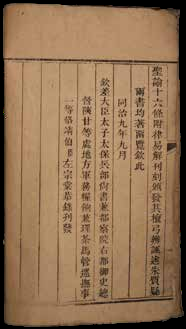 聖諭十六條附律易解刊刻頒發其檀弓辨誣述朱質疑
兩書均著留覽欽此
同治九年九月
欽差大臣太子太保兵部尚書兼都察院右都御史總
督陝甘等處地方軍務糧餉兼理茶馬管巡撫事
一等恪靖伯左宗棠恭錄刊發